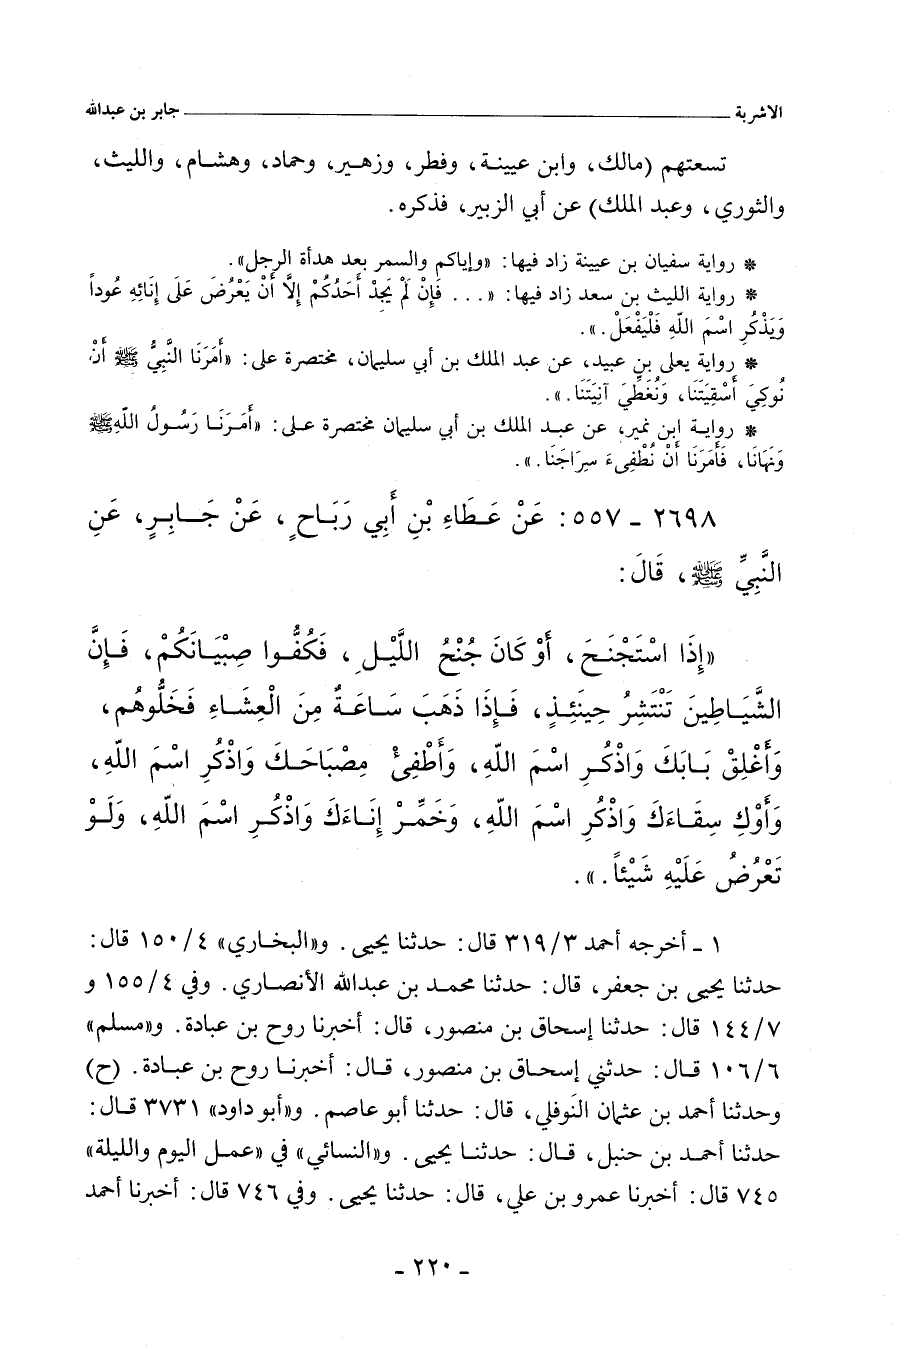 الاشربة ــــــــــــــــــــــــــــــ جابر بن عبدالله
تسعتهم (مالك، وابن عيينة، وفطر، وزهير، وحماد، وهشام، والليث،
والثوري، وعبد الملك) عن أبي الزبير، فذكره.
* رواية سفيان بن عيينة زاد فيها: «وإياكم والسمر بعد هدأة الرجل».
* رواية الليث بن سعد زاد فيها: «... فَإِنْ لَمْ يَجِدْ أَحَدُكُمْ إِلَّا أَنْ يَعْرُضَ عَلَى إِنَائِهِ عُوداً
وَيَذْكُرِ اسْمَ اللهِ فَلْيَفْعَلْ.».
* رواية يعلى بن عبيد، عن عبد الملك بن أبي سليمان، مختصرة على: «أَمَرَنَا النَّبِيُّ ﷺ أَنْ
نُوكِيَ أَسْقِيَتَنَا، وَنُغَطِّيَ آنِيَتَنَا.».
* رواية ابن نمير، عن عبد الملك بن أبي سليمان مختصرة على: «أَمَرَنَا رَسُولُ اللهِ ﷺ
وَنَهَانَا، فَأَمَرَنَا أَنْ نُطْفِىءَ سِرَاجَنَا.».
٢٦٩٨ - ٥٥٧: عَنْ عَطَاءِ بْنِ أَبِي رَبَاحٍ، عَنْ جَابِرٍ، عَنِ
النَّبِيِّ ﷺ، قَالَ:
«إِذَا اسْتَجْنَحَ، أَوْ كَانَ جُنْحُ اللَّيْلِ، فَكُفُّوا صِبْيَانَكُمْ، فَإِنَّ
الشَّيَاطِينَ تَنْتَشِرُ حِينَئِذٍ، فَإِذَا ذَهَبَ سَاعَةٌ مِنَ الْعِشَاءِ فَخَلُّوهُم،
وَأَغْلِقْ بَابَكَ وَاذْكُرِ اسْمَ اللهِ، وَأَطْفِئْ مِصْبَاحَكَ وَاذْكُرِ اسْمَ اللهِ،
وَأَوْكِ سِقَاءَكَ وَاذْكُرِ اسْمَ اللهِ، وَخَمِّرْ إِنَاءَكَ وَاذْكُرِ اسْمَ اللهِ، وَلَوْ
تَعْرُضُ عَلَيْهِ شَيْئاً.».
١ - أخرجه أحمد ٣١٩/٣ قال: حدثنا يحيى. و«البخاري» ١٥٠/٤ قال:
حدثنا يحيى بن جعفر، قال: حدثنا محمد بن عبدالله الأنصاري. وفي ١٥٥/٤ و
١٤٤/٧ قال: حدثنا إسحاق بن منصور، قال: أخبرنا روح بن عبادة. و«مسلم»
١٠٦/٦ قال: حدثني إسحاق بن منصور، قال: أخبرنا روح بن عبادة. (ح)
وحدثنا أحمد بن عثمان النوفلي، قال: حدثنا أبو عاصم. و«أبو داود» ٣٧٣١ قال:
حدثنا أحمد بن حنبل، قال: حدثنا يحيى. و«النسائي» في «عمل اليوم والليلة»
٧٤٥ قال: أخبرنا عمرو بن علي، قال: حدثنا يحيى. وفي ٧٤٦ قال: أخبرنا أحمد
- ٢٢٠ -